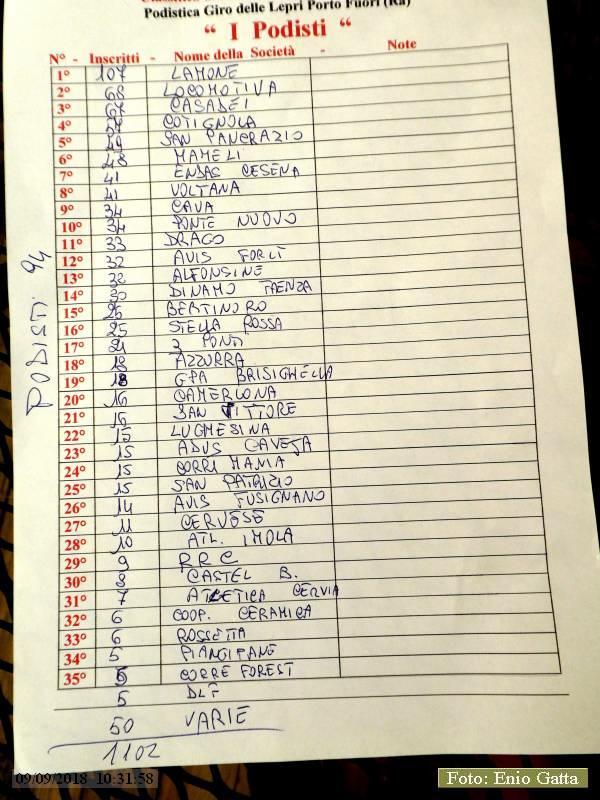 Podistica Giro delle Lepri Porto Fuori (Ra)
“ I Podisti “
N° - Inscritti - Nome della Società - Note
1° 107 LAMONE
2° 68 LOCOMOTIVA
3° 67 CASADEI
4° COTIGNOLA
5° SAN PANCRAZIO
6° 48 MAMELI
7° 41 ENDAS CESENA
8° 41 VOLTANA
9° 34 CAVA
10° 34 PONTE NUOVO
11° 33 DRAGO
12° 32 AVIS FORLÌ
13° 32 ALFONSINE
14° 30 DINAMO FAENZA
15° BERTINORO
16° 25 STELLA ROSSA
17° 21 2 PONTI
18° AZZURRA
19° 18 GPA BRISIGHELLA
20° 16 CAMERLONA
21° SAN VITTORE
22° 15 LUGHESINA
23° 15 ADVS CAVEJA
24° 15 CORRI MANIA
25° 15 SAN PATRIZIO
26° 14 AVIS FUSIGNANO
27° 11 CERVESE
28° 10 ATL. IMOLA
29° 9 RRC
30° 8 CASTEL B.
31° 7 ATLETICA CERVIA
32° 6 COOP. CERAMICA
33° 6 ROSSETTA
34° 5 PIANGIPANE
35° 5 CORRE FOREST
5 DLF
50 VARIE
1102
PODISTI 94
09/09/2018 10:31:58
Foto: Enio Gatta